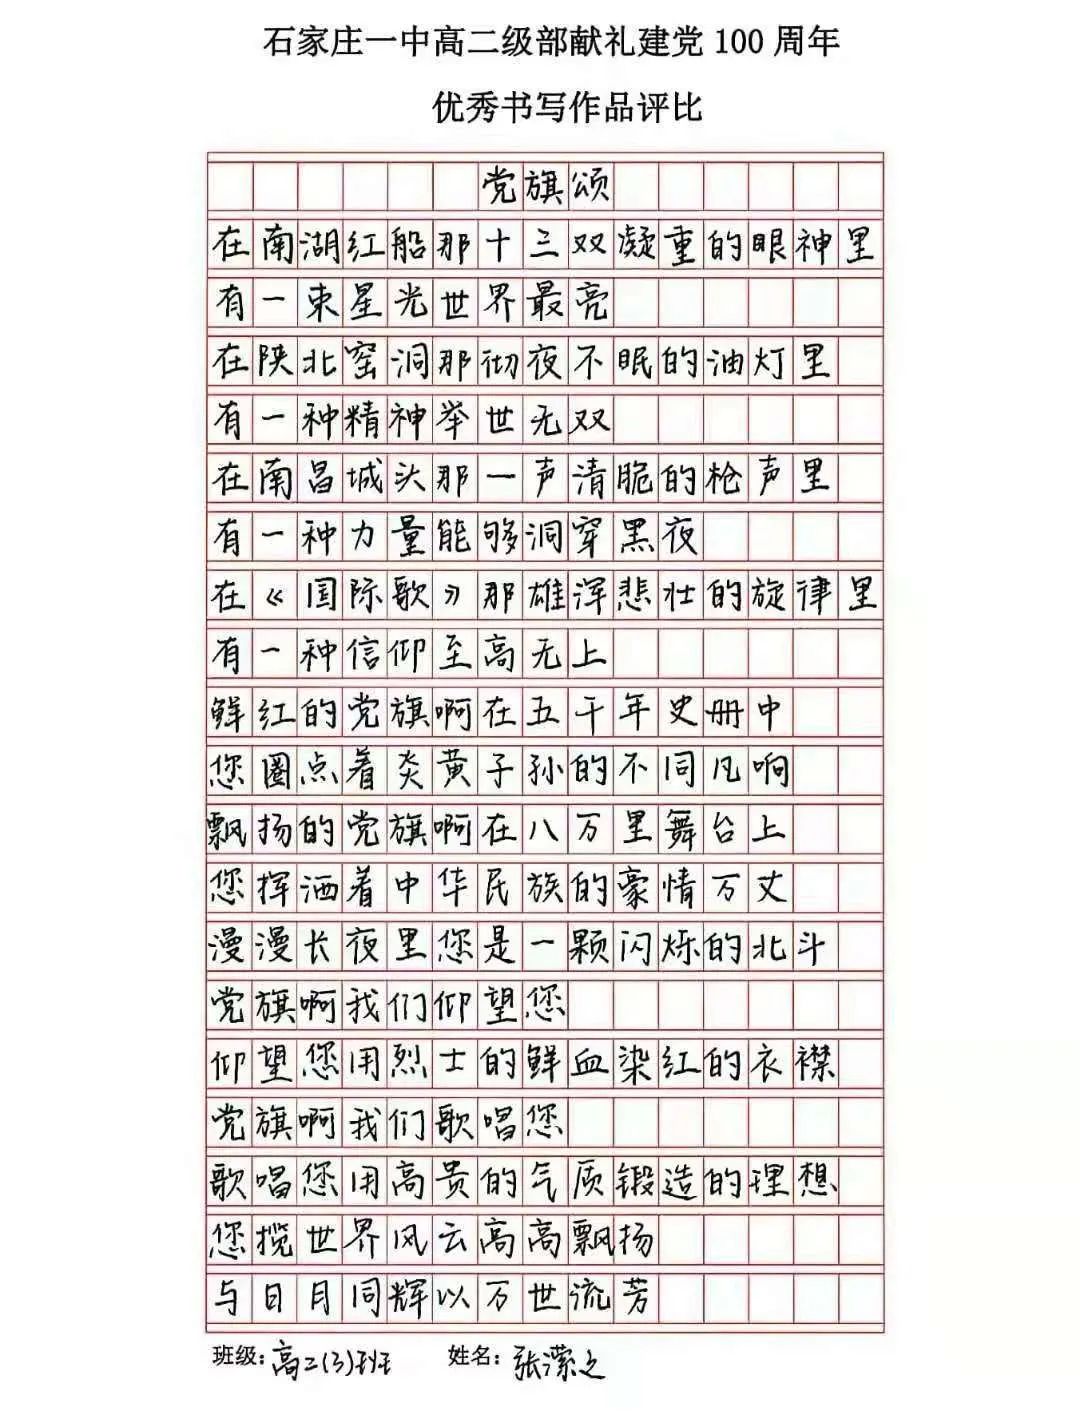 石家庄一中高二级部献礼建党 100 周年
优秀书写作品评比
党旗颂
在南湖红船那十三双凝重的眼神里
有一束星光世界最亮
在陕北窑洞那彻夜不眠的油灯里
有一种精神举世无双
在南昌城头那一声清脆的枪声里
有一种力量能够洞穿黑夜
在《国际歌》那雄浑悲壮的旋律里
有一种信仰至高无上
鲜红的党旗啊在五千年史册中
您圈点着炎黄子孙的不同凡响
飘扬的党旗啊在八万里舞台上
您挥洒着中华民族的豪情万丈
漫漫长夜里您是一颗闪烁的北斗
党旗啊我们仰望您
仰望您用烈士的鲜血染红的衣襟
党旗啊我们歌唱您
歌唱您用高贵的气质锻造的理想
您揽世界风云高高飘扬
与日月同辉以万世流芳
班级:高二(3)班 姓名:张潆之